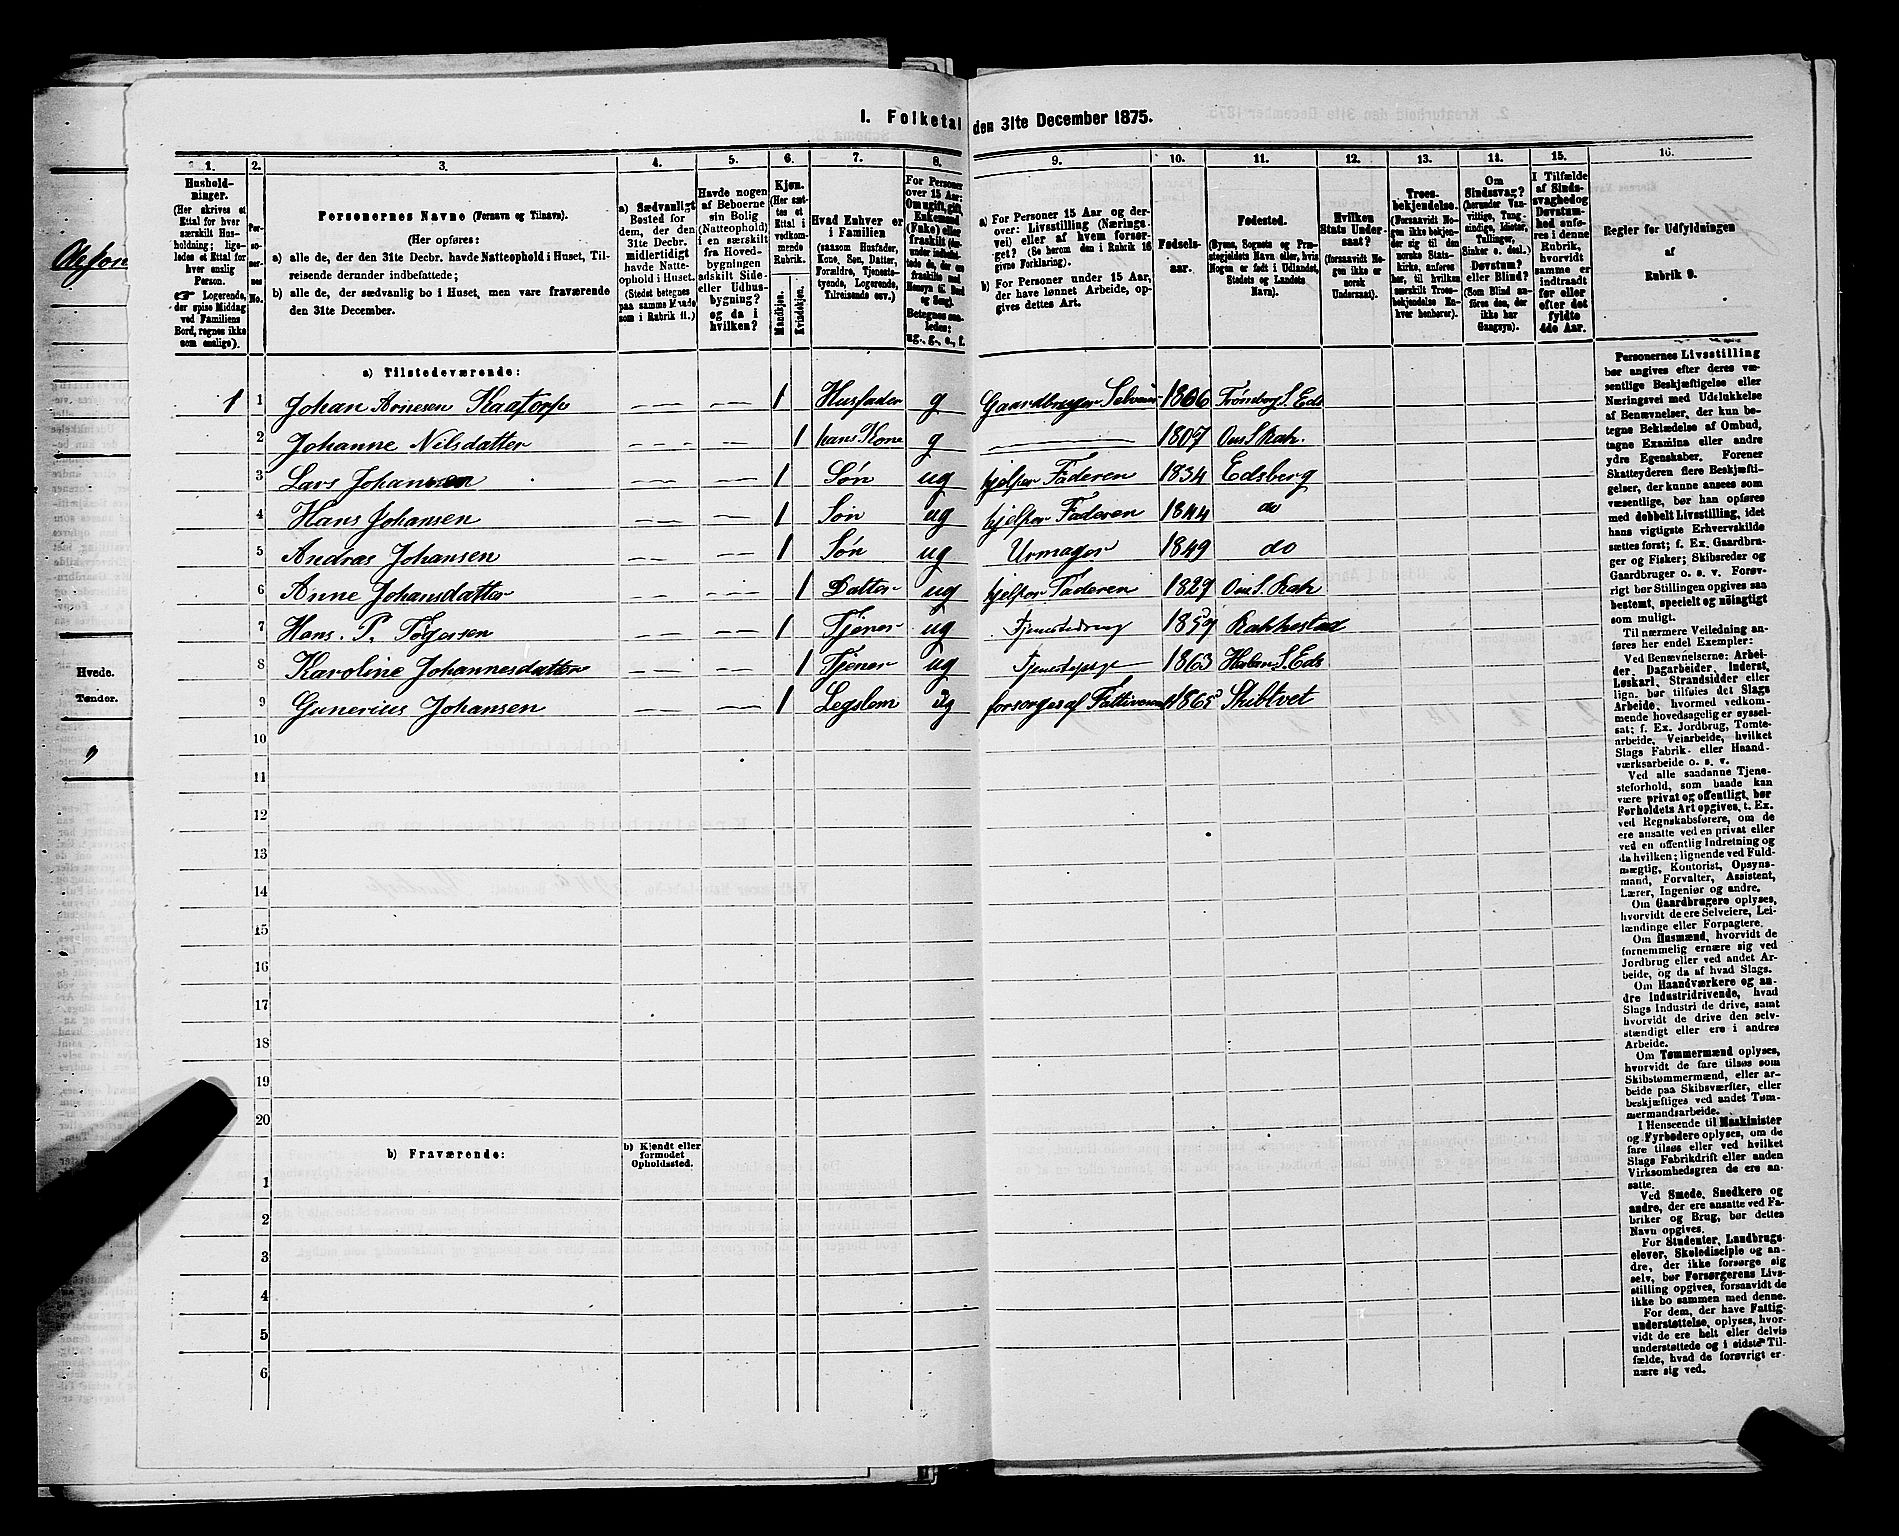 1. Folketal den 31te December 1875.
1.
Hushold-
ninger.
(Her skrives et
Ettal for hver
særskilt Hus-
holdning; lige-
ledes et Ettal for
hver enslig
Person.
Logerende,
der spise Middag
ved Familiens
Bord, regnes ikke
som enslige).
2.
Per-
so-
ner-
nes
No.
3.
Personernes Navne (Fornavn og Tilnavn).
(Her opføres:
a) alle de, der den 31te Decbr. havde Natteophold i Huset, Til-
reisende derunder indbefattede;
b) alle de, der sædvanlig bo i Huset, men vare fraværende
den 31te December.
4.
a) Sædvanligt
Bosted for
dem, der den
31te Decbr.
midlertidigt
havde Natte-
ophold i Huset.
(Stedet betegnes
paa samme Maade
som i Rubrik 11.)
5.
Havde nogen
af Beboerne
sin Bolig
(Natteophold)
i en særskilt
fra Hoved-
bygningen
adskilt Side-
eller Udhus-
bygning?
og da i
hvilken?
6.
Kjøn.
(Her sæt-
tes et
Ettal i
vedkom-
mende
Rubrik.
Mandkjøn.
Kvindekjøn.
7.
Hvad Enhver er
i Familien
(saasom Husfader,
Kone, Søn, Datter,
Forældre, Tjeneste-
tyende, Logerende,
Tilreisende osv.)
8.
For Personer
over 15 Aar:
Om ugift, gift,
Enkemand
(Enke) eller
fraskilt
Betegnes saa-
ledes:
ug., g., e., f.
9.
a) For Personer 15 Aar og der-
over: Livsstilling (Nærings-
vei) eller af hvem forsør-
get? (Se herom den i Rubrik 16
givne Forklaring).
b) For Personer under 15 Aar,
der have lønnet Arbeide, op-
gives dettes Art.
10.
Fødsels-
aar.
11.
Fødested.
(Byens, Sognets og Præ-
stegjeldets Navn eller, hvis
Nogen er født i Udlandet,
Stedets og Landets
Navn).
12.
Hvilken
Stats Under-
saat?
(forsaavidt No-
gen ikke er
norsk
Undersaat).
13.
Troes-
bekjendelse.
(Forsaavidt No-
gen ikke bekjen-
der sig til den
norske Stats-
kirke, anføres
her, til hvilken
særskilt Troes-
bekjendelse En-
hver henhører).
14.
Om
Sindssvag?
(herunder Van-
vittige, Tung-
sindige, Idioter,
Tullinger,
Sinker o. desl.)
Døvstum?
eller Blind?
(Som Blind an-
føres den, der
ikke har
Gangsyn).
15.
I Tilfælde
af Sinds-
svaghed og
Døvstum-
hed anfø-
res i denne
Rubrik,
hvorvidt
samme er
indtraadt
før eller
efter det
fyldte
4de Aar.
16.
Regler for Udfyldningen
af
Rubrik 9.
a) Tilstedeværende:
1 1 Johan Arnesen Kaatorp 1 Husfader g Gaardbruger Selveier 1806 Trømborg S. Eds
2 Johanne Nilsdatter 1 hans Kone g 1807 Oms S. Rak.
3 Lars Johansen 1 Søn ug hjelper Faderen 1834 Edsberg
4 Hans Johansen 1 Søn ug hjelper Faderen 1844 do
5 Andras Johansen 1 Søn ug Urmager 1849 do
6 Anne Johansdatter 1 Datter ug hjelper Faderen 1829 Oms S. Rak
7 Hans. P. Togersen 1 Tjener ug Tjenestedreng 1857 Rakkestad
8 Karoline Johannesdatter 1 Tjener ug Tjenestepige 1863 S. Eds
9 Gunerius Johansen 1 Legslem ug forsorges af 1865 Skibtvet
10
11
12
13
14
15
16
17
18
19
20
b) Fraværende:
b) Kjendt eller
formodet
Opholdssted.
1
2
3
4
5
6
Personernes Livsstilling
bør angives efter deres væ-
sentlige Beskjæftigelse eller
Næringsvei med Udelukkelse
af Benævnelser, der kun be-
tegne Beklædelse af Ombud,
tagne Examina eller andre
ydre Egenskaber. Forener
Skatteyderen flere Beskjæfti-
gelser, der kunne ansees som
væsentlige, bør han opføres
med dobbelt Livsstilling, idet
hans vigtigste Erhvervskilde
sættes først; f. Ex. Gaardbru-
ger og Fisker; Skibsreder og
Gaardbruger o. s. v. Forøv-
rigt bør Stillingen opgives saa
bestemt, specielt og nøiagtigt
som muligt.
Til nærmere Veiledning an-
føres her endel Exempler:
Ved Benævnelserne: Arbei-
der, Dagarbeider, Inderst,
Løskarl, Strandsidder eller
lign. bør tilføies det Slags
Arbeide, hvormed vedkom-
mende hovedsagelig er syssel-
sat; f. Ex. Jordbrug, Tomte-
arbeide, Veiarbeide, hvilket
Slags Fabrik- eller Haand-
værksarbeide o. s. v.
Ved alle saadanne Tjene-
steforhold, som baade kan
være privat og offentligt, bør
Forholdets Art opgives, t. Ex.
ved Regnskabsførere, om de
ere ansatte ved en privat eller
ved en offentlig Indretning og
da hvilken; lignende ved Fuld-
mægtig, Kontorist, Opsyns-
mand, Forvalter, Assistent,
Lærer, Ingeniør og andre.
Om Gaardbrugere oplyses,
hvorvidt de ere Selveiere, Lei-
lændinge eller Forpagtere.
Om Husmænd, hvorvidt de
fornemmelig ernære sig ved
Jordbrug eller ved andet Ar-
beide, og da af hvad Slags.
Om Haandværkere og an-
dre Industridrivende, hvad
Slags Industri de drive, samt
hvorvidt de drive den selv-
stændigt eller ere i andres
Arbeide.
Om Tømmermænd oplyses,
hvorvidt de fare tilsøs som
Skibstømmermænd, eller ar-
beide paa Skibsværfter, eller
beskjæftiges ved andet Tøm-
mermandsarbeide.
I Henseende til Maskinister
og Fyrbødere oplyses, om de
fare tilsøs eller ved hvilket
Slags Fabrikdrift eller anden
Virksomhedsgren de ere an-
satte.
Ved Smede, Snedkere og
andre, der ere ansatte ved Fa-
briker og Brug, bør dettes
Navn opgives.
For Studenter, Landbrugs-
elever, Skoledisciple og an-
dre, der ikke forsørge sig
selv, bør Forsørgerens Livs-
stilling opgives, forsaavidt de
ikke bo sammen med denne.
For dem, der have Fattig-
understøttelse, oplyses, hvor-
vidt de ere helt eller delvis
understøttede og i sidste Til-
fælde, hvad de forøvrigt er-
nære sig ved.
Hvede.
Tønder.